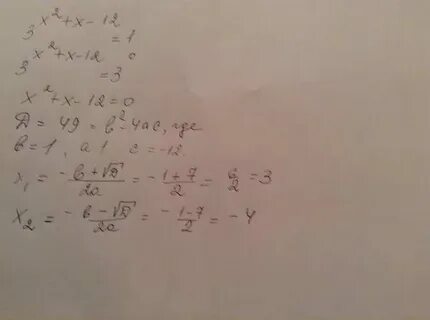 3^{x²+x-12} = 1
3^{x²+x-12} = 3^0
x²+x-12=0
D = 49 = b²-4ac, где
b=1, a 1 c=-12.
x₁ = \frac{-b+√D}{2a} = \frac{-1+7}{2} = \frac{6}{2} = 3
x₂ = \frac{-b-√D}{2a} = \frac{-1-7}{2} = -4